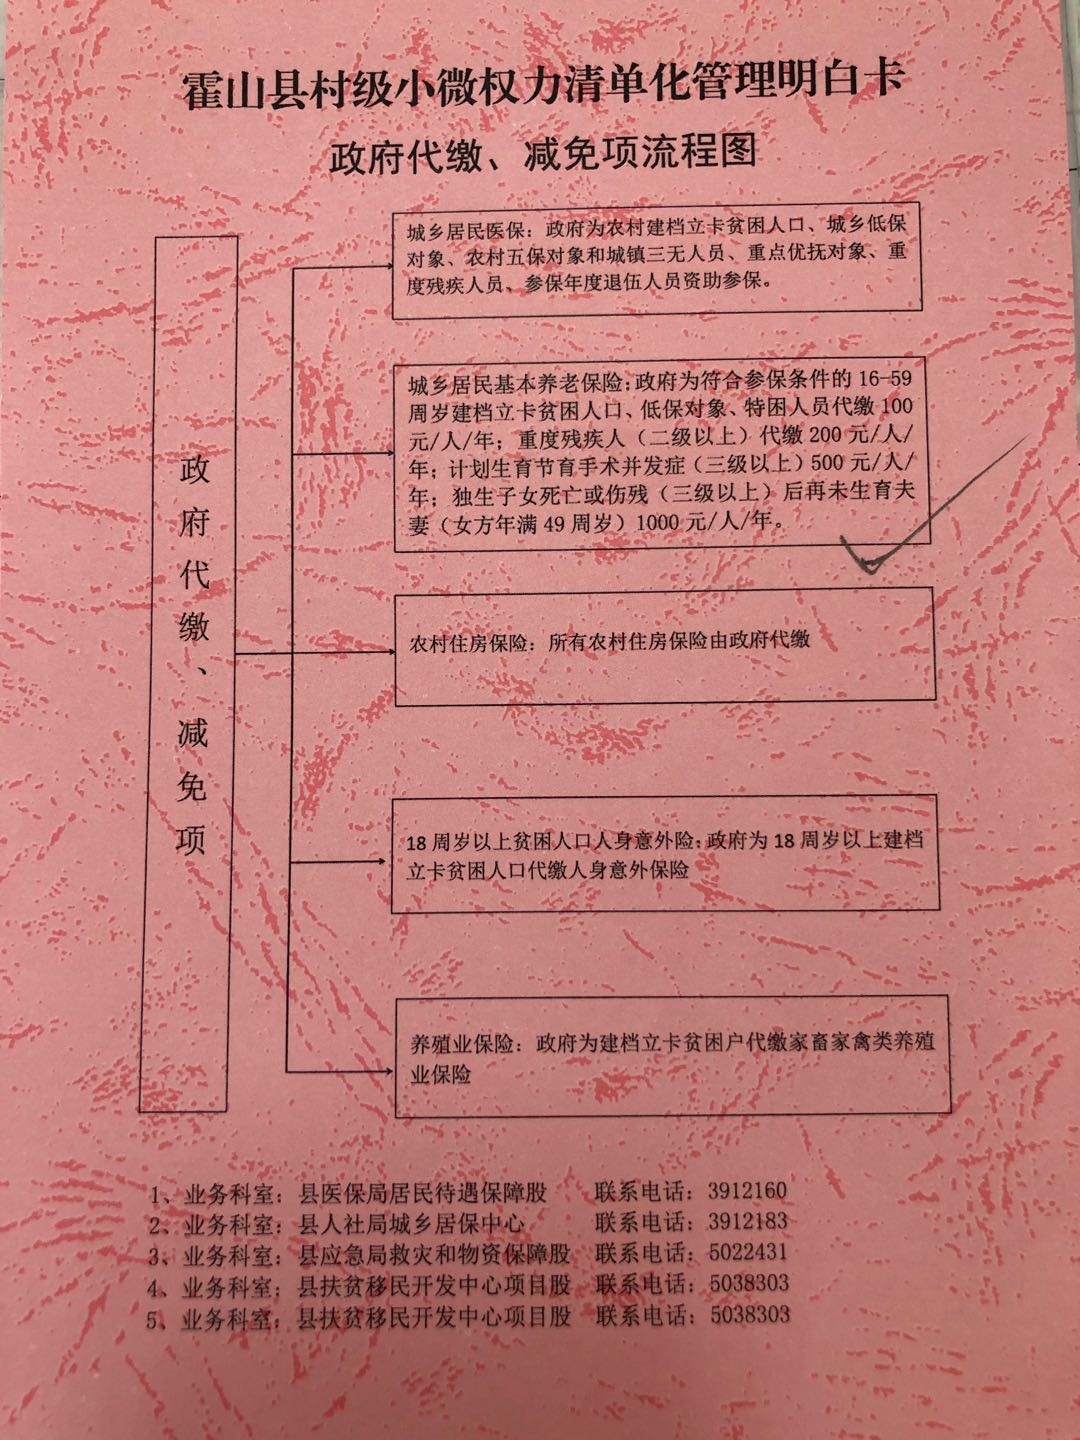 霍山县村级小微权力清单化管理明白卡
政府代缴、减免项流程图
政府代缴、减免项
城乡居民医保：政府为农村建档立卡贫困人口、城乡低保
对象、农村五保对象和城镇三无人员、重点优抚对象、重
度残疾人员、参保年度退伍人员资助参保。
城乡居民基本养老保险：政府为符合参保条件的16-59
周岁建档立卡贫困人口、低保对象、特困人员代缴100
元/人/年；重度残疾人（二级以上）代缴200元/人/
年；计划生育节育手术并发症（三级以上）500元/人/
年；独生子女死亡或伤残（三级以上）后再未生育夫
妻（女方年满49周岁）1000元/人/年。
农村住房保险：所有农村住房保险由政府代缴
18周岁以上贫困人口人身意外险：政府为18周岁以上建档
立卡贫困人口代缴人身意外保险
养殖业保险：政府为建档立卡贫困户代缴家畜家禽类养殖
业保险
1、业务科室：县医保局居民待遇保障股 联系电话：3912160
2、业务科室：县人社局城乡居保中心 联系电话：3912183
3、业务科室：县应急局救灾和物资保障股 联系电话：5022431
4、业务科室：县扶贫移民开发中心项目股 联系电话：5038303
5、业务科室：县扶贫移民开发中心项目股 联系电话：5038303